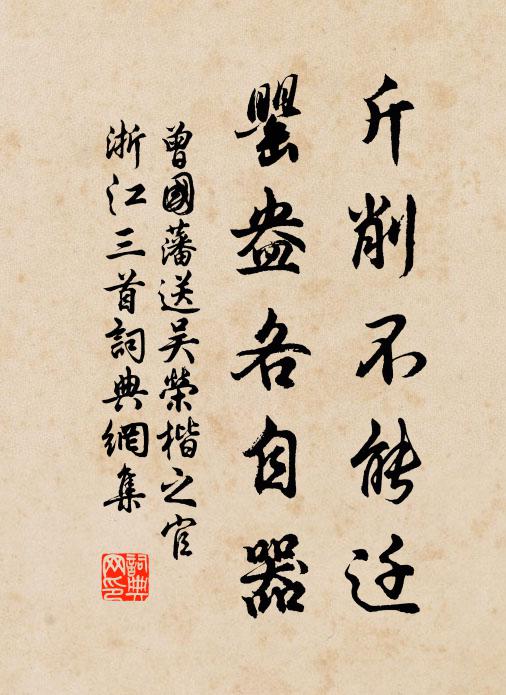 斤削不能迁
罂盎各自器
曾國藩送吴榮楷之官
浙江三首詞典網集
詞典
网印